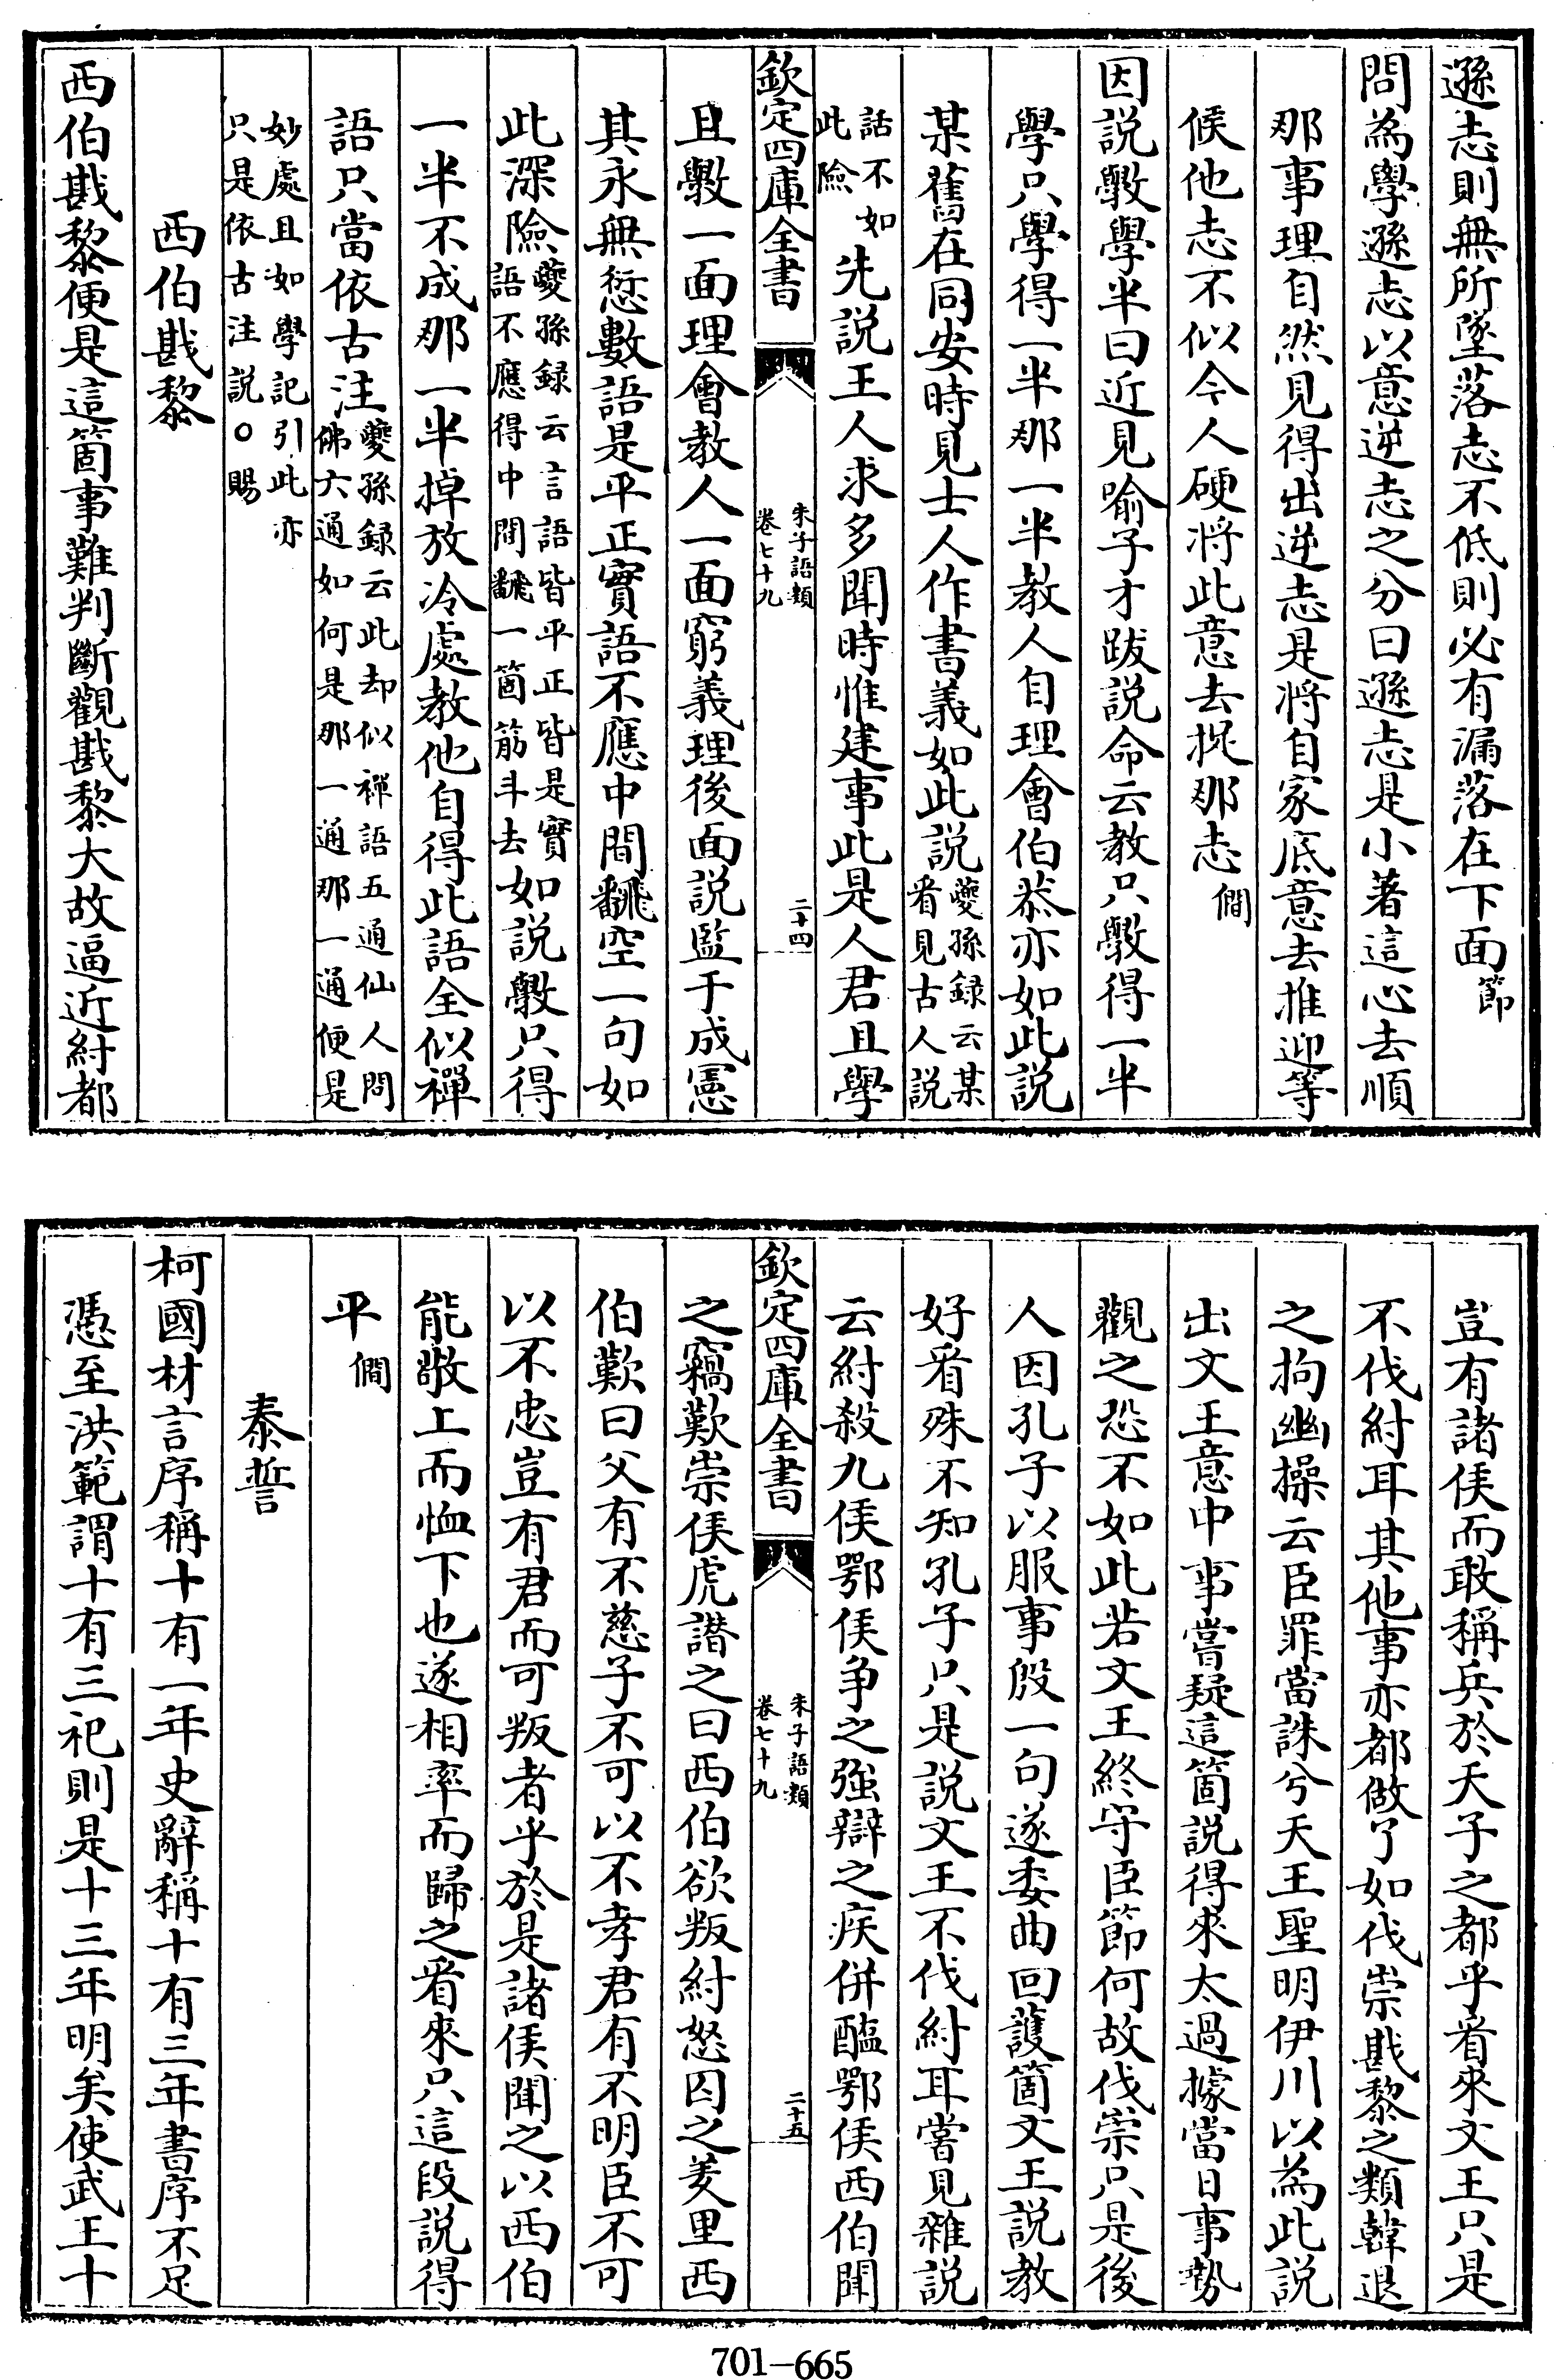 遜志則無所墜落志不低則必有漏落在下面節
問為學遜志以意逆志之分曰遜志是小著這心去順
那事理自然見得出逆志是將自家底意去推迎等
候他志不似今人硬將此意去捉那志㽦
因説斆學半曰近見喻子才跋説命云教只斆得一半
學只學得一半那一半教人自理會伯恭亦如此説
某舊在同安時見士人作書義如此説夔孫録云某
看見古人説
話不如
此險先説王人求多聞時惟建事此是人君且學
欽定四庫全書
朱子語類
卷七十九
二十四
且斆一面理會教人一面窮義理後面説監于成憲
其永無愆數語是平正實語不應中間翻空一句如
此深險夔孫録云言語皆平正皆是實
語不應得中間翻一箇筋斗去如説斆只得
一半不成那一半掉放冷處教他自得此語全似禪
語只當依古注夔孫録云此却似禪語五通仙人問
佛六通如何是那一通那一通便是
妙處且如學記引此亦
只是依古注説○賜
西伯戡黎
西伯戡黎便是這箇事難判斷觀戡黎大故逼近紂都
豈有諸侯而敢稱兵於天子之都乎看來文王只是
不伐紂耳其他事亦都做了如伐崇戡黎之類韓退
之拘幽操云臣罪當誅兮天王聖明伊川以為此説
出文王意中事嘗疑這箇説得來太過據當日事勢
觀之恐不如此若文王終守臣節何故伐崇只是後
人因孔子以服事殷一句遂委曲回護箇文王説教
好看殊不知孔子只是説文王不伐紂耳嘗見雜説
云紂殺九侯鄂侯爭之強辯之疾併醢鄂侯西伯聞
欽定四庫全書
朱子語類
卷七十九
二十五
之竊歎崇侯虎譖之曰西伯欲叛紂怒囚之羑里西
伯歎曰父有不慈子不可以不孝君有不明臣不可
以不忠豈有君而可叛者乎於是諸侯聞之以西伯
能敬上而恤下也遂相率而歸之看來只這段説得
平㽦
泰誓
柯國材言序稱十有一年史辭稱十有三年書序不足
憑至洪範謂十有三祀則是十三年明矣使武王十
701-665